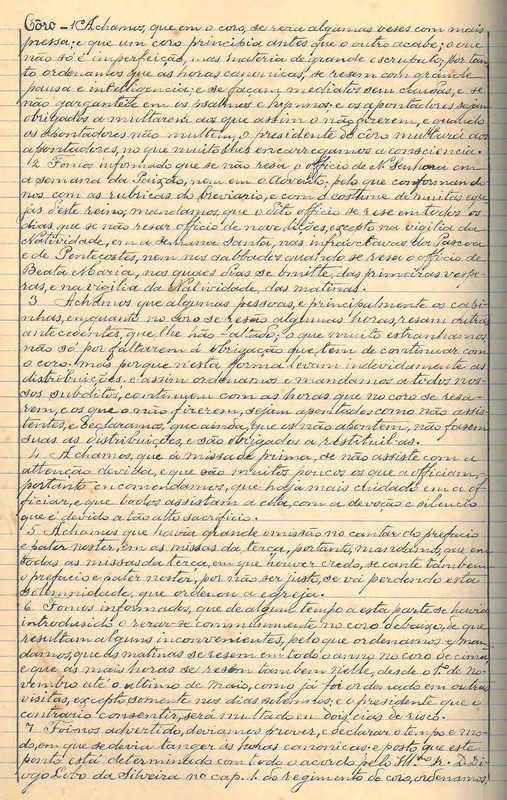 Côro - 1º Achamos, que em o coro, se resa algumas veses com mais
pressa; e que um coro principia antes que o outro acabe; o que
não só é imperfeição, mas materia de grande escrupulo; por tan-
to ordenamos que as horas canonicas, se resem com grande
pausa e intelligencia; e se façam mediatos sem caudas, e se
não gargantêe em os psalmos e hymnos; e os apontadores sejam
obrigados a multarem aos que assim o não fizerem, e quando
os apontadores não multem, o presidente do côro multará aos
apontadores, no que muito lhes encarregamos a consciencia.
2 Fomos informado que se não resa, o officio de N. Senhora em
a semana da Paixão, nem em o Advento; pelo que conformando-
nos com as rubricas do breviario, e com o costume de muitas egre-
jas d'este reino, mandamos, que o dito officio se rese em todos os
dias que se não resar officio de nove lições, excepto na vigilia da
Natividade, em a semana santa, nas infraoctavas da Pascoa
e de Pentecostes, nem nos sabbados quando se resa o officio de
Beata Maria, nos quaes dias se omitte, das primeiras vespe-
ras, e na vigilia da Natividade, das matinas.
3 Achamos que algumas pessoas, e principalmente os capi-
nhas, em quanto no coro se resão algumas horas, resam outras
antecedentes, que lhe não ; o que muito estranhamos
não só por faltarem á obrigação que tem de continuar com
o coro, mas porque n'esta forma levam indevidamente as
distribuições, e assim ordenamos e mandamos a todos nos-
sos subditos, continuem com as horas que no coro se resa-
rem, e os que o não fizerem, sejam apontados como não assis-
tentes, e declaramos, que ainda, que os não apontem, não fasem
suas as distribuições, e são obrigados a restituil-as.
4 Achamos, que á missa de prima, se não assiste com a
attenção devida, e que são muitos poucos os que a officiam,
portanto encommendamos, que haja mais cuidado em a of-
ficiar, e que todos assistam a ella, com a devoção e silencio
que é devido a tão alto sacrificio.
5 Achamos que havia grande omissão no cantar do prefacio
e pater noster, em as missas da terça, portanto, mandamos, que em
todas as missas da terça, em que houver credo, se cante tambem
o prefacio e pater noster, por não ser justo, se vá perdendo esta
solemnidade, que ordenou a egreja.
6 Fomos informados, que de algum tempo a esta parte se havia
introdusido o rezar-se commummente no coro debaixo, de que
resultam alguns inconvenientes, pelo que ordenamos e man-
damos, que as matinas se resem em todo o anno no coro de cima,
e que as mais horas se resem tambem nelle, desde o 1.º de No-
vembro até o ultimo de Maio, como já foi ordenado em outras
visitas, excepto somente nos dias solemnes; e o presidente que o
contrario consentir, será multado em dois dias de risco.
7 Foimos advertido, deviamos prover, e declarar o tempo e mo-
do, em que se devia tanger ás horas canonicas; e posto que este
ponto está determinado com todo o acordo pelo Ill.mo Sr. D. Di-
ogo Lobo da Silveira no cap. 1. do regimento do coro, ordenamos,